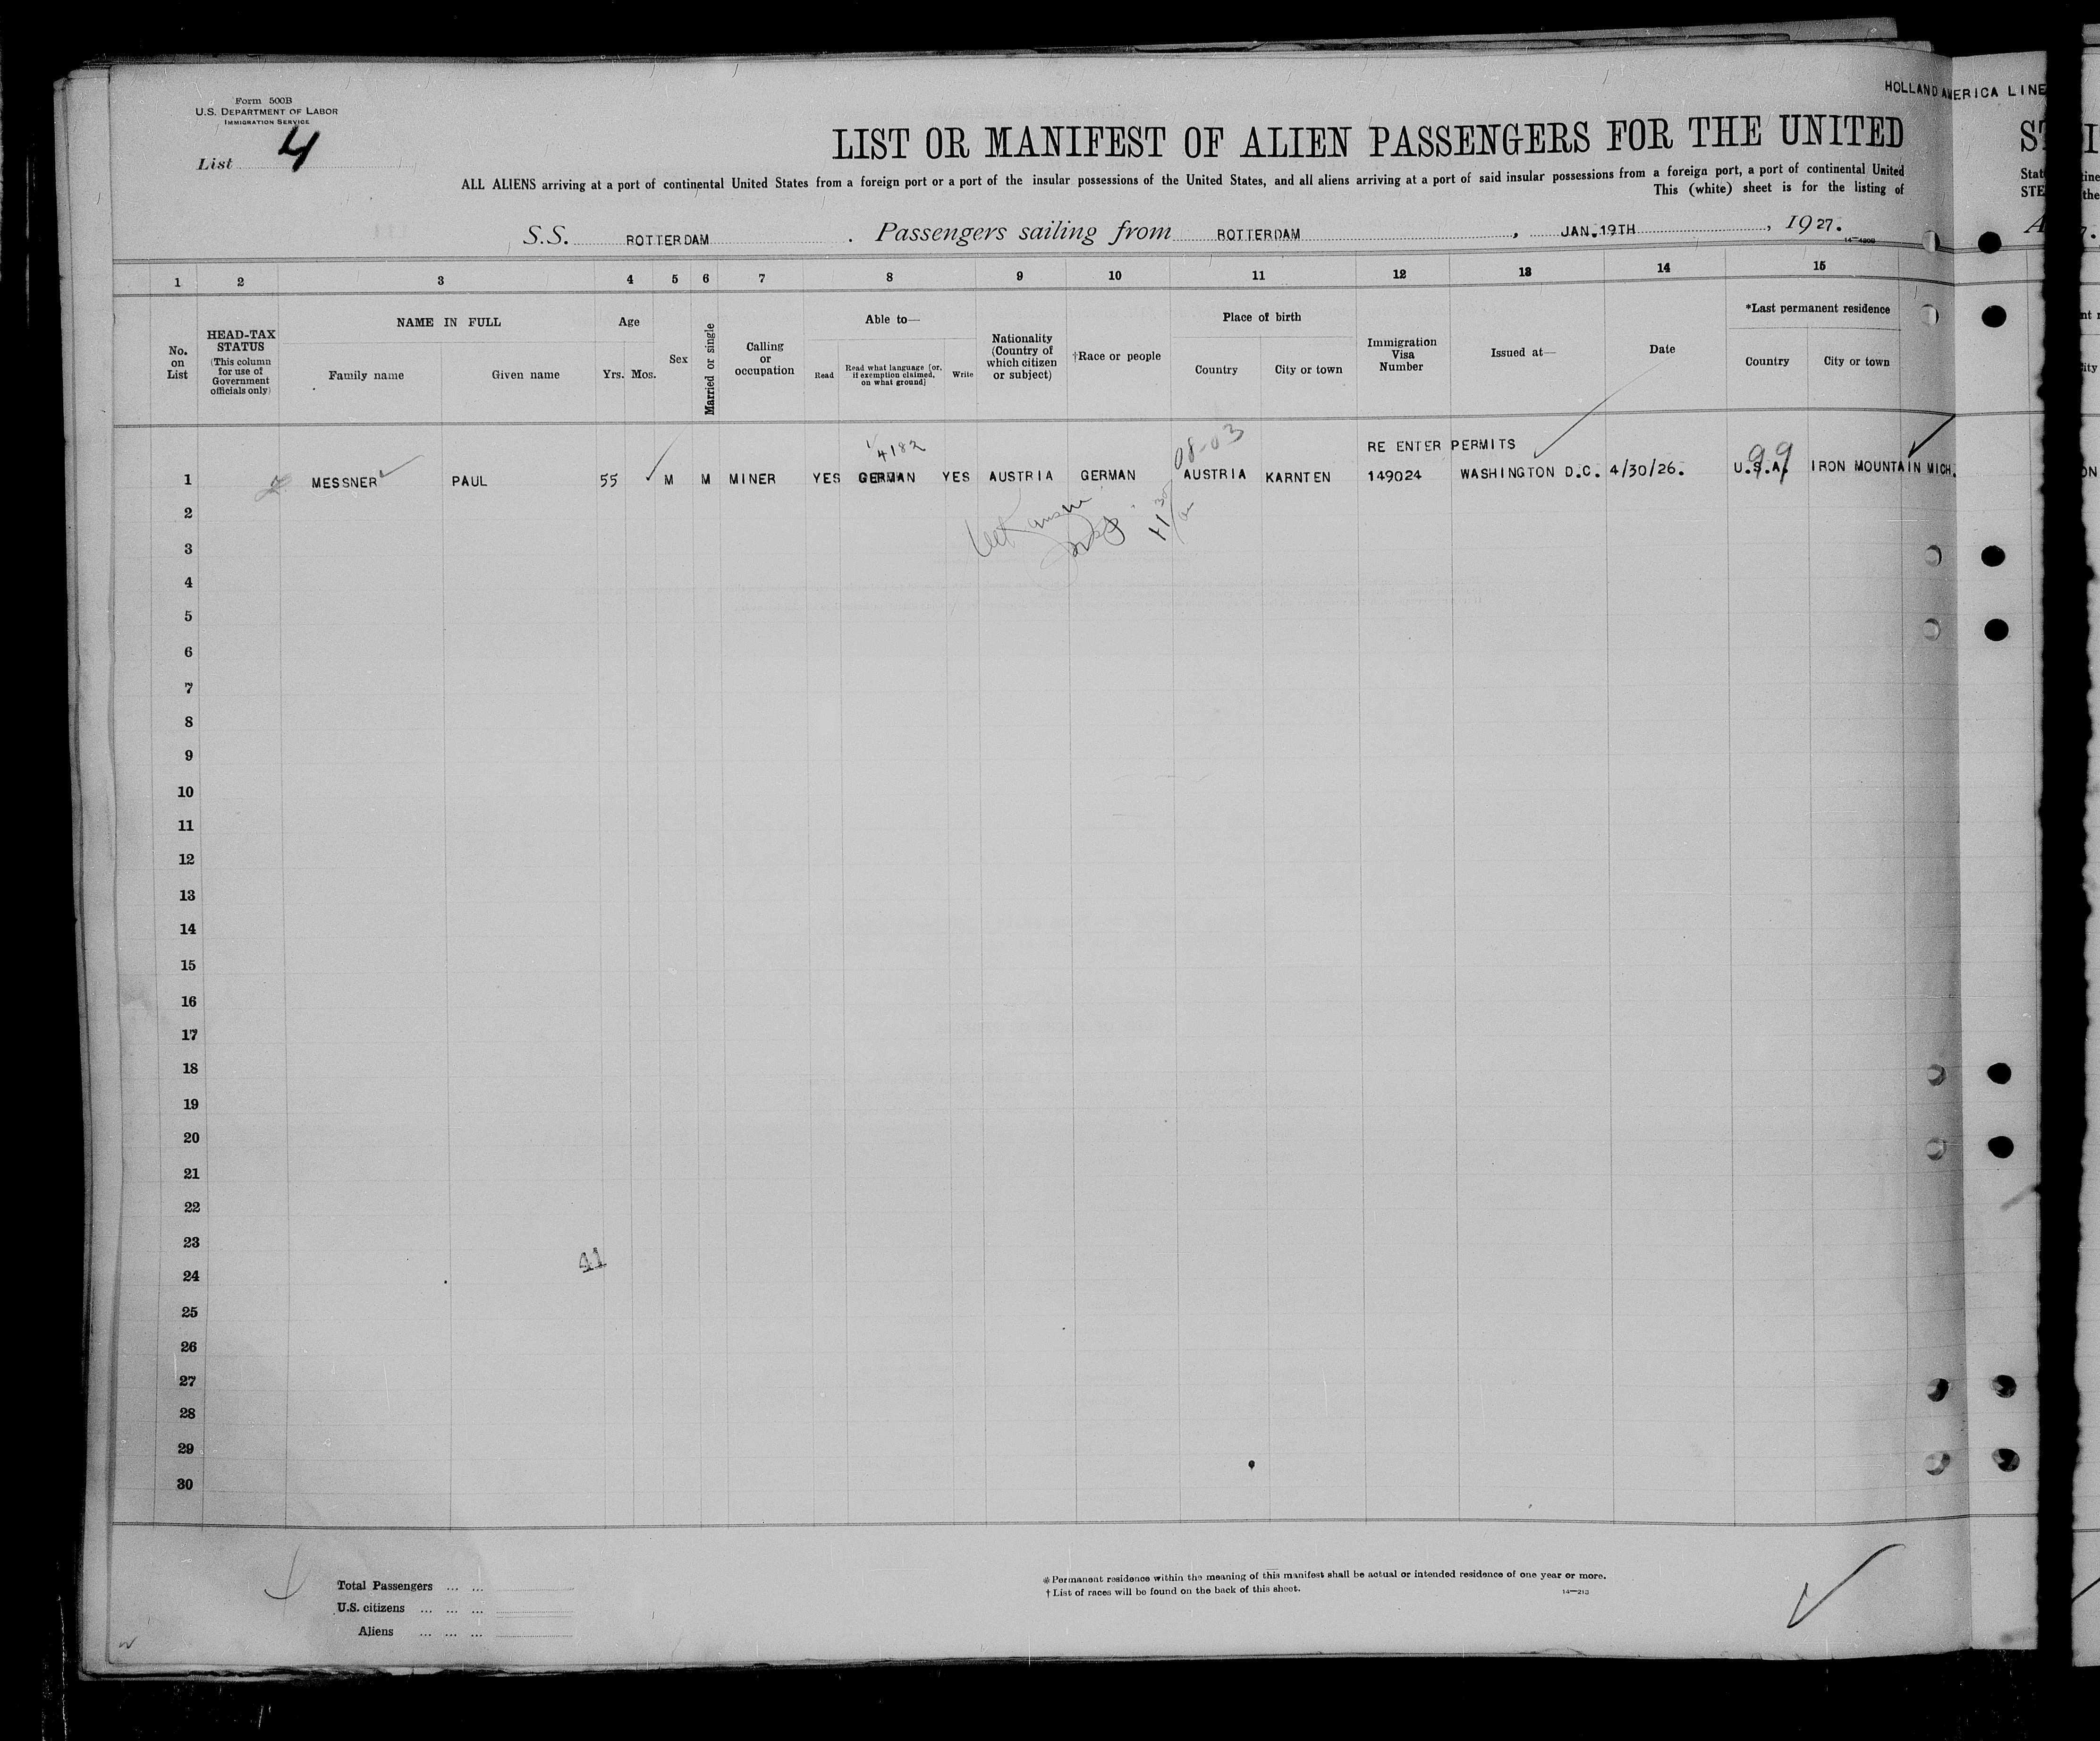 HOLLAND AMERICA LINE
Form 500B
U.S. DEPARTMENT OF LABOR
IMMIGRATION SERVICE
List 4
LIST OR MANIFEST OF ALIEN PASSENGERS FOR THE UNITED
ALL ALIENS arriving at a port of continental United States from a foreign port or a port of the insular possessions of the United States, and all aliens arriving at a port of said insular possessions from a foreign port, a port of continental United
This (white) sheet is for the listing of
S.S. ROTTERDAM . Passengers sailing from ROTTERDAM , JAN.19TH , 1927.
1 2 3 4 5 6 7 8 9 10 11 12 13 14 15
No. on List
HEAD-TAX STATUS (This column for use of Government officials only)
NAME IN FULL
Family name Given name
Age
Yrs. Mos.
Sex
Married or single
Calling or occupation
Able to—
Read Read what language [or, if exemption claimed, on what ground] Write
Nationality (Country of which citizen or subject)
†Race or people
Place of birth
Country City or town
Immigration Visa Number
Issued at—
Date
*Last permanent residence
Country City or town
4182 08-03
RE ENTER PERMITS 99
1 MESSNER PAUL 55 M M MINER YES GERMAN YES AUSTRIA GERMAN AUSTRIA KARNTEN 149024 WASHINGTON D.C. 4/30/26. U.S.A. IRON MOUNTAIN MICH.
2
3
4
5
6
7
8
9
10
11
12
13
14
15
16
17
18
19
20
21
22
23
41
24
25
26
27
28
29
30
Total Passengers ... ...
U.S. citizens ... ... ...
Aliens ... ... ...
*Permanent residence within the meaning of this manifest shall be actual or intended residence of one year or more.
†List of races will be found on the back of this sheet.
14—213